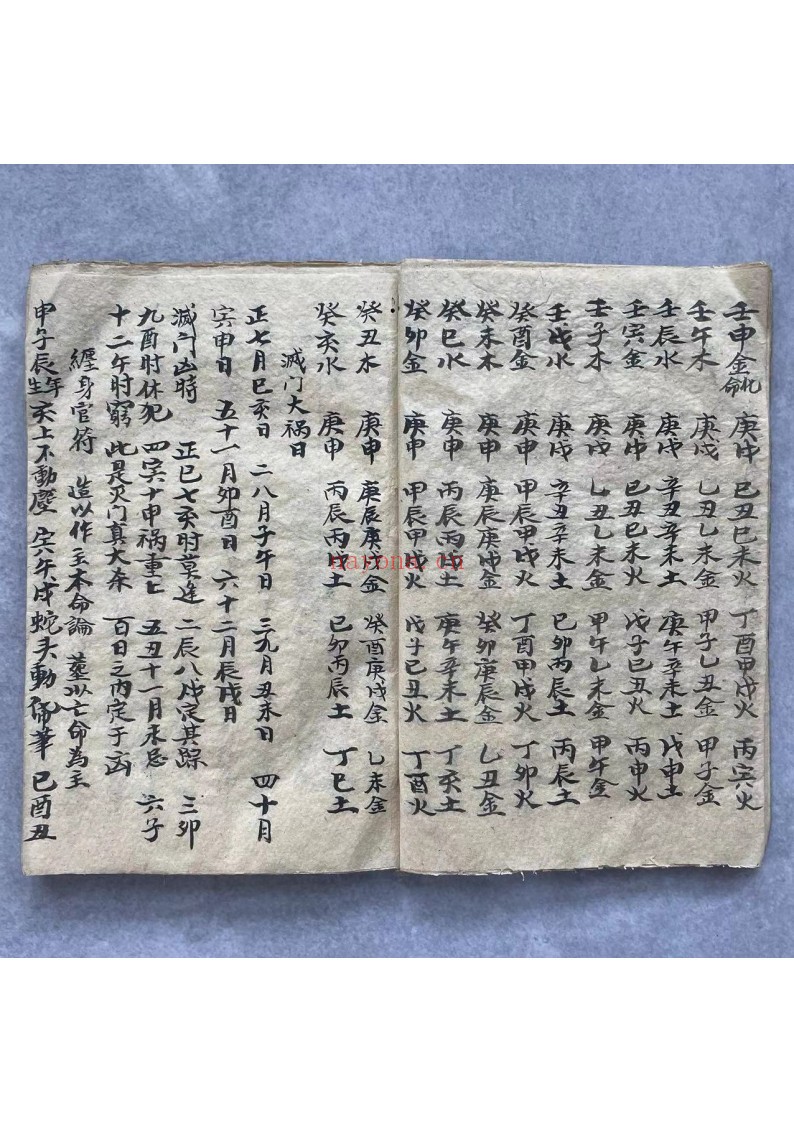 壬申金此命 庚戌 己丑己未火 丁酉甲戌火 丙寅火
壬午木 庚戌 乙丑乙未金 甲子乙丑金 甲子金
壬辰水 庚戌 辛丑辛未土 庚午辛未土 戊申土
壬寅金 庚戌 己丑己未火 戊子己丑火 丙申火
壬子木 庚戌 乙丑乙未金 甲午乙未金 甲午金
壬戌水 庚戌 辛丑辛未土 己卯丙辰土 丙辰土
癸酉金 庚申 甲辰甲戌火 丁酉甲戌火 丁卯火
癸未木 庚申 庚辰庚戌金 癸卯庚辰金 乙丑金
癸巳水 庚申 丙辰丙戌土 庚午辛未土 丁亥土
癸卯金 庚申 甲辰甲戌火 戊子己丑火 丁酉火
癸丑木 庚申 庚辰庚戌金 癸酉庚戌金 乙未金
癸亥水 庚申 丙辰丙戌土 己卯丙辰土 丁巳土
滅门大祸日
正七月巳亥日 二八月子午日 三九月丑未日 四十月
寅申日 五十一月卯酉日 六十二月辰戌日
滅门凶時 正巳七亥时莫逢 二辰八戌定其踪 三卯
九酉时休犯 四寅十申祸重七 五丑十一月未忌 六子
十二午时窮 此是灭门真大杀 百日之内定于凶
纏身官符 造以作主本命論 墓以亡命為主
申子辰年生亥上不動塵 寅午戌蛇头動 巳酉丑
naiona.cn